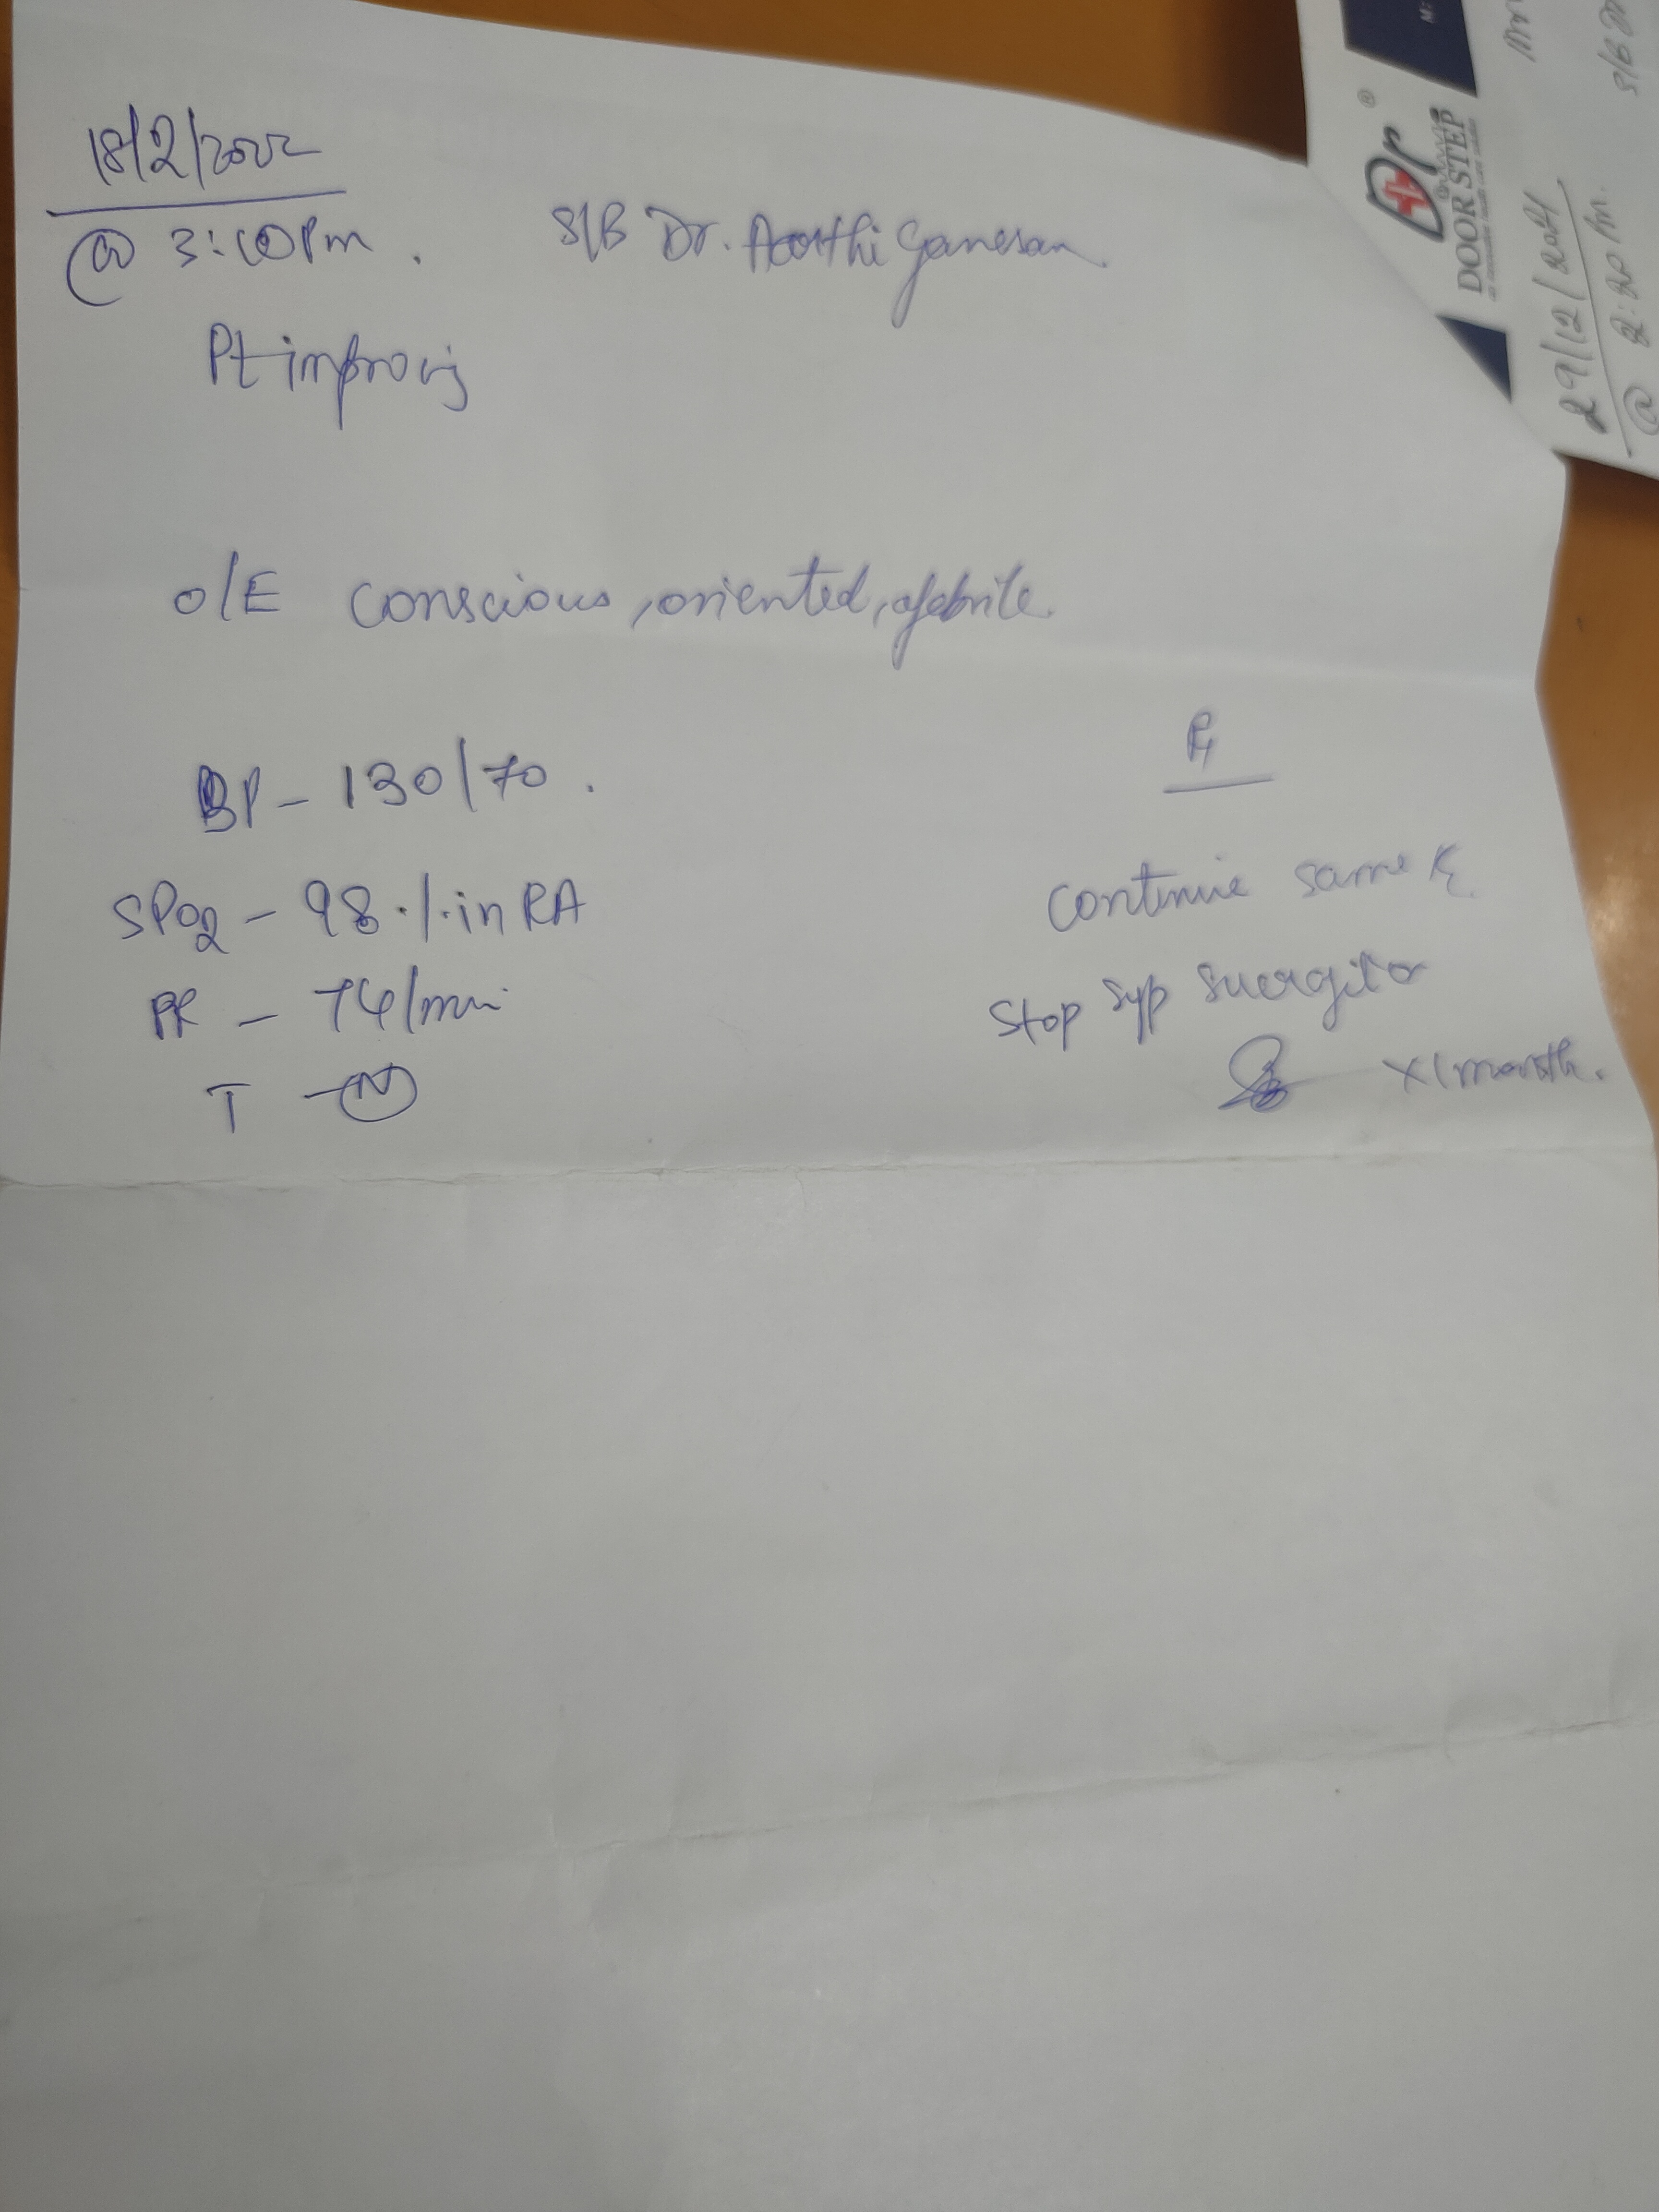 18/2/2022
@ 3:10 Pm. S/B Dr. Aarthi Ganesan.
Pt improvig
O/E conscious, oriented, afebrile.
BP - 130/70.
SPO2 - 98 % in RA
PR - 74/min
T - (N)
Rx
continue same Rx
Stop syp
x 1 month.
Dr
®
DOOR STEP
29/12/2021
@ 2:20 Pm.
S/B Dr